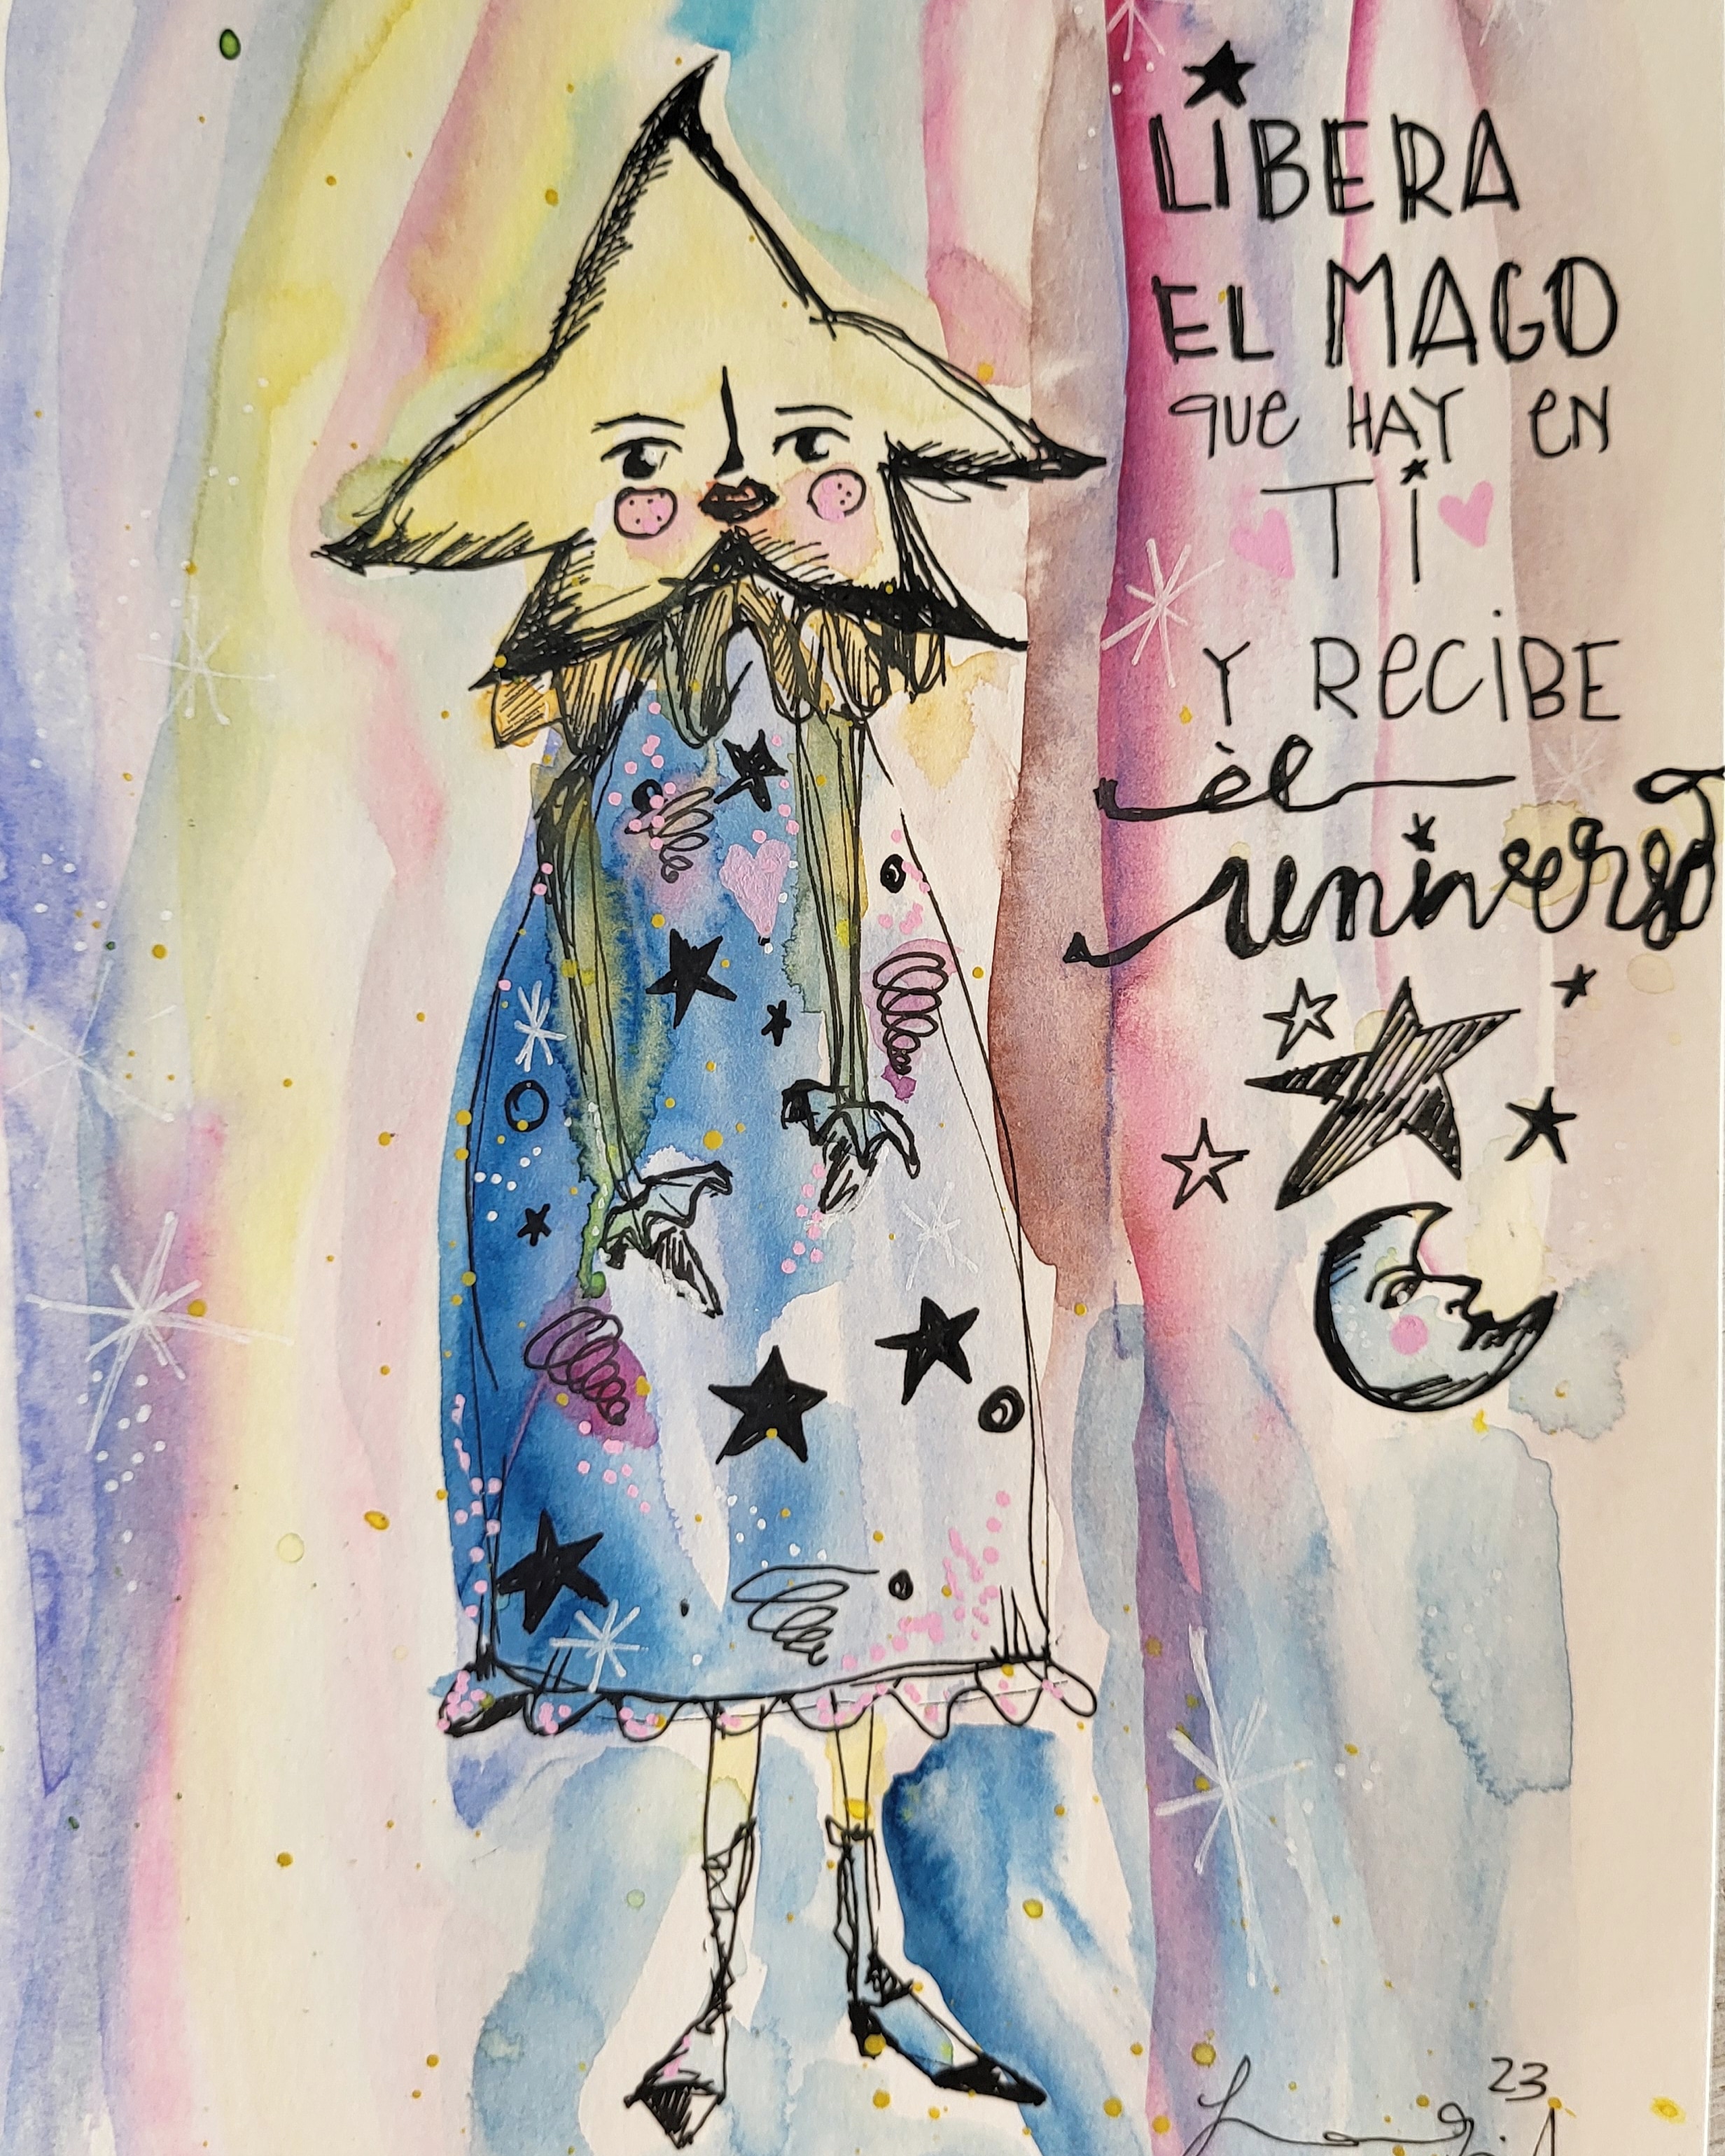 LIBERA
EL MAGO
que HAY eN
Ti
Y ReCiBE
èl
universo
23